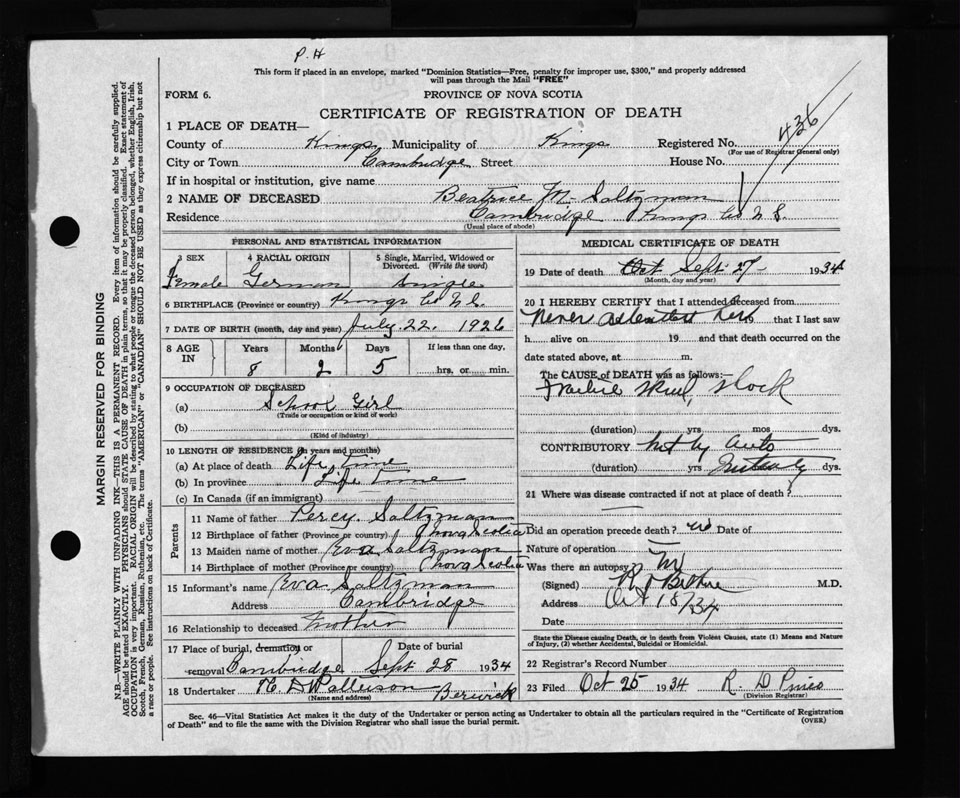 P. H
This form if placed in an envelope, marked "Dominion Statistics—Free, penalty for improper use, $300," and properly addressed
will pass through the Mail "FREE"
FORM 6.
PROVINCE OF NOVA SCOTIA
CERTIFICATE OF REGISTRATION OF DEATH
436
1 PLACE OF DEATH—
County of Kings, Municipality of Kings Registered No.
(For use of Registrar General only)
City or Town Cambridge Street House No.
If in hospital or institution, give name
2 NAME OF DECEASED Beatrice M. Saltzman
Residence Cambridge Kings Co N.S.
(Usual place of abode)
PERSONAL AND STATISTICAL INFORMATION
3 SEX 4 RACIAL ORIGIN 5 Single, Married, Widowed or
Divorced. (Write the word)
Female German Single
6 BIRTHPLACE (Province or country) Kings Co N.S.
7 DATE OF BIRTH (month, day and year) July. 22. 1926
8 AGE IN Years Months Days If less than one day,
8 2 5 hrs. or min.
9 OCCUPATION OF DECEASED
(a) School Girl
(Trade or occupation or kind of work)
(b)
(Kind of industry)
10 LENGTH OF RESIDENCE (In years and months)
(a) At place of death Life Time
(b) In province Life Time
(c) In Canada (if an immigrant)
Parents
11 Name of father Percy. Saltzman
12 Birthplace of father (Province or country) Nova Scotia
13 Maiden name of mother Eva Saltzman
14 Birthplace of mother (Province or country) Nova Scotia
15 Informant's name Eva Saltzman
Address Cambridge
16 Relationship to deceased Mother
17 Place of burial, cremation or Date of burial
removal Cambridge Sept 28 1934
18 Undertaker Berwick
(Name and address)
MEDICAL CERTIFICATE OF DEATH
19 Date of death Oct Sept 27 1934
(Month, day and year)
20 I HEREBY CERTIFY that I attended deceased from
Never attended her 19 that I last saw
h alive on 19 and that death occurred on the
date stated above, at m.
The CAUSE OF DEATH was as follows:—
Skull, Shock
(duration) yrs mos dys.
CONTRIBUTORY hit by auto
(duration) yrs dys.
21 Where was disease contracted if not at place of death?
Did an operation precede death? no Date of
Nature of operation
Was there an autopsy?
(Signed) M.D.
Address Oct 18/34
Date
State the Disease causing Death, or in death from Violent Causes, state (1) Means and Nature
of Injury, (2) whether Accidental, Suicidal or Homicidal.
22 Registrar's Record Number
23 Filed Oct 25 1934 R D
(Division Registrar)
Sec. 46—Vital Statistics Act makes it the duty of the Undertaker or person acting as Undertaker to obtain all the particulars required in the "Certificate of Registration
of Death" and to file the same with the Division Registrar who shall issue the burial permit.
(OVER)
MARGIN RESERVED FOR BINDING
N.B.—WRITE PLAINLY WITH UNFADING INK—THIS IS A PERMANENT RECORD. Every item of information should be carefully supplied.
AGE should be stated EXACTLY. PHYSICIANS should STATE CAUSE OF DEATH in plain terms, so that it may be properly classified. Exact statement of
OCCUPATION is very important. RACIAL ORIGIN will be described by stating to what people or tongue the deceased person belonged, whether English, Irish,
Scotch, French, German, Russian, Ruthenian, etc. The terms "AMERICAN" or "CANADIAN" SHOULD NOT BE USED as they express citizenship but not
a race or people. See instructions on back of Certificate.